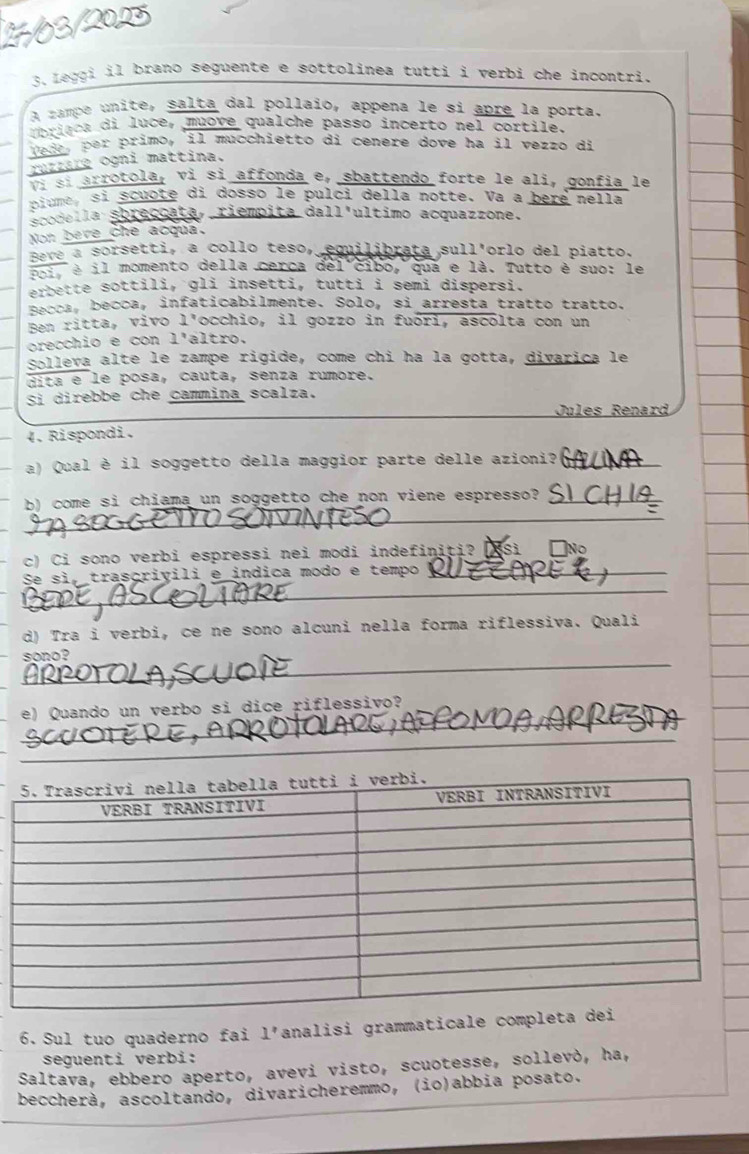 27/03/2025
3. Leggi il brano seguente e sottolinea tutti i verbi che incontri.
A zampe unite, salta dal pollaio, appena le si apre la porta.
Ubriaca di luce, muove qualche passo incerto nel cortile.
Vede, per primo, il mucchietto di cenere dove ha il vezzo di
ruzzare ogni mattina.
Vi si arrotola, vi si affonda e, sbattendo forte le ali, gonfia le
piume, si scuote di dosso le pulci della notte. Va a bere nella
scodella sbreccata, riempita dall'ultimo acquazzone.
Non beve che acqua.
Beve a sorsetti, a collo teso, equilibrata sull'orlo del piatto.
Poi, è il momento della cerca del cibo, qua e là. Tutto è suo: le
erbette sottili, gli insetti, tutti i semi dispersi.
Becca, becca, infaticabilmente. Solo, si arresta tratto tratto.
Ben ritta, vivo l'occhio, il gozzo in fuori, ascolta con un
orecchio e con l'altro.
Solleva alte le zampe rigide, come chi ha la gotta, divarica le
dita e le posa, cauta, senza rumore.
Si direbbe che cammina scalza.
Jules Renard
4. Rispondi.
a) Qual è il soggetto della maggior parte delle azioni? GALLINA
b) come si chiama un soggetto che non viene espresso? SI CHIA
MA SOGGETTO SOTTINTESO
c) Ci sono verbi espressi nei modi indefiniti? ☒Sì ☐No
Se sì, trascrivili e indica modo e tempo RUZZARE
BERE, ASCOLTARE
d) Tra i verbi, ce ne sono alcuni nella forma riflessiva. Quali
sono?
ARROTOLA, SCUOTE
e) Quando un verbo si dice riflessivo?
SCUOTERE, ARROTOLARE, AFFONDA, ARRESTA
5. Trascrivi nella tabella tutti i verbi.
VERBI TRANSITIVI VERBI INTRANSITIVI
6. Sul tuo quaderno fai l'analisi grammaticale completa dei
seguenti verbi:
Saltava, ebbero aperto, avevi visto, scuotesse, sollevò, ha,
beccherà, ascoltando, divaricheremmo, (io)abbia posato.